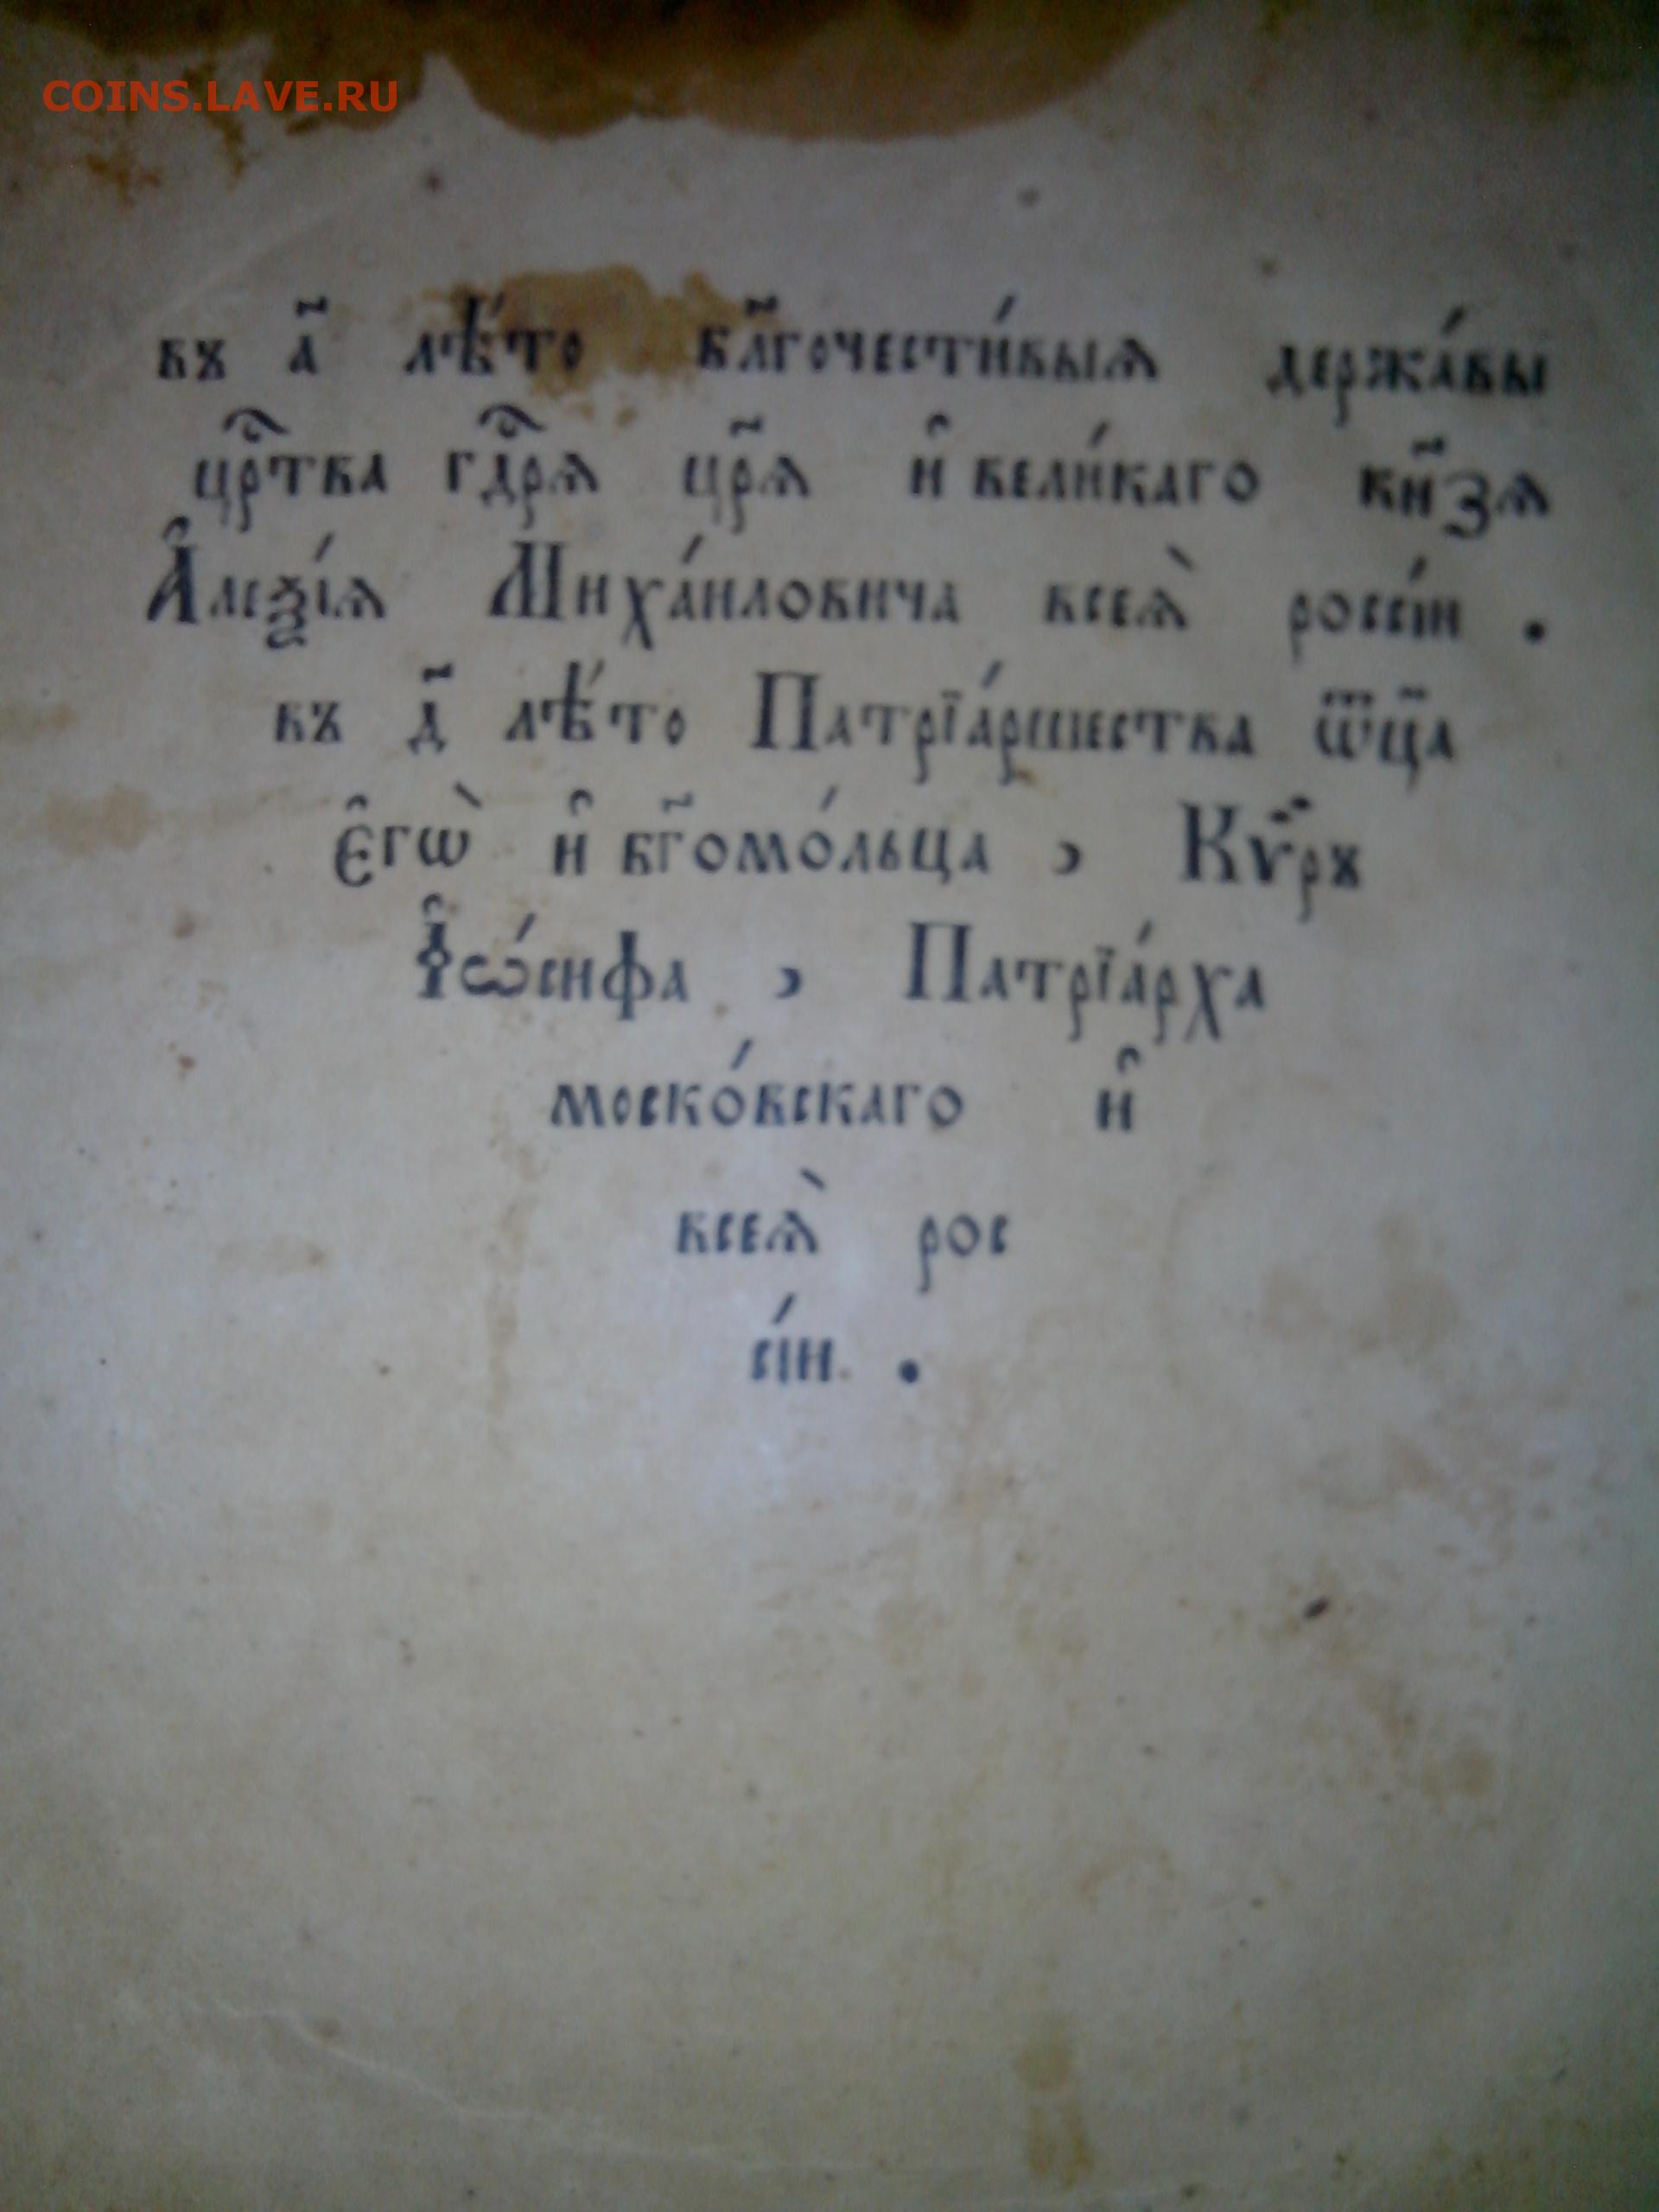 COINS.LAVE.RU
въ а҃ лѣ́то бл҃гочести́выѧ держа́вы
црⷭ҇тва гдⷭ҇рѧ цр҃ѧ и҆ вели́каго кн҃зѧ
А҆леѯі́ѧ Миха́иловича всеѧ̀ россі́и .
въ д҃ лѣ́то Патрїа́ршества ѿц҃а
є҆гѡ̀ и҆ бг҃омо́льца , Кѵ̈ръ
І҆ѡ́сифа , Патрїа́рха
моско́вскаго и҆
всеѧ̀ рос
сі́и .